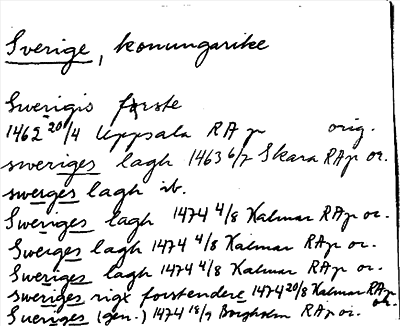 Sverige, konungarike
Swerigis første
1462 20/4 Uppsala RAp orig.
sweriges lagh 1463 6/7 Skara RAp or.
swerges lagh ib.
Sweriges lagh 1474 4/8 Kalmar RAp or.
Swerges lagh 1474 4/8 Kalmar RAp or.
Sweriges lagh 1474 4/8 Kalmar RAp or.
sweriges rigx forstendere 1474 20/8 Kalmar RAp or.
Sueriges (gen.) 1474 18/9 Borgholm RAp or.